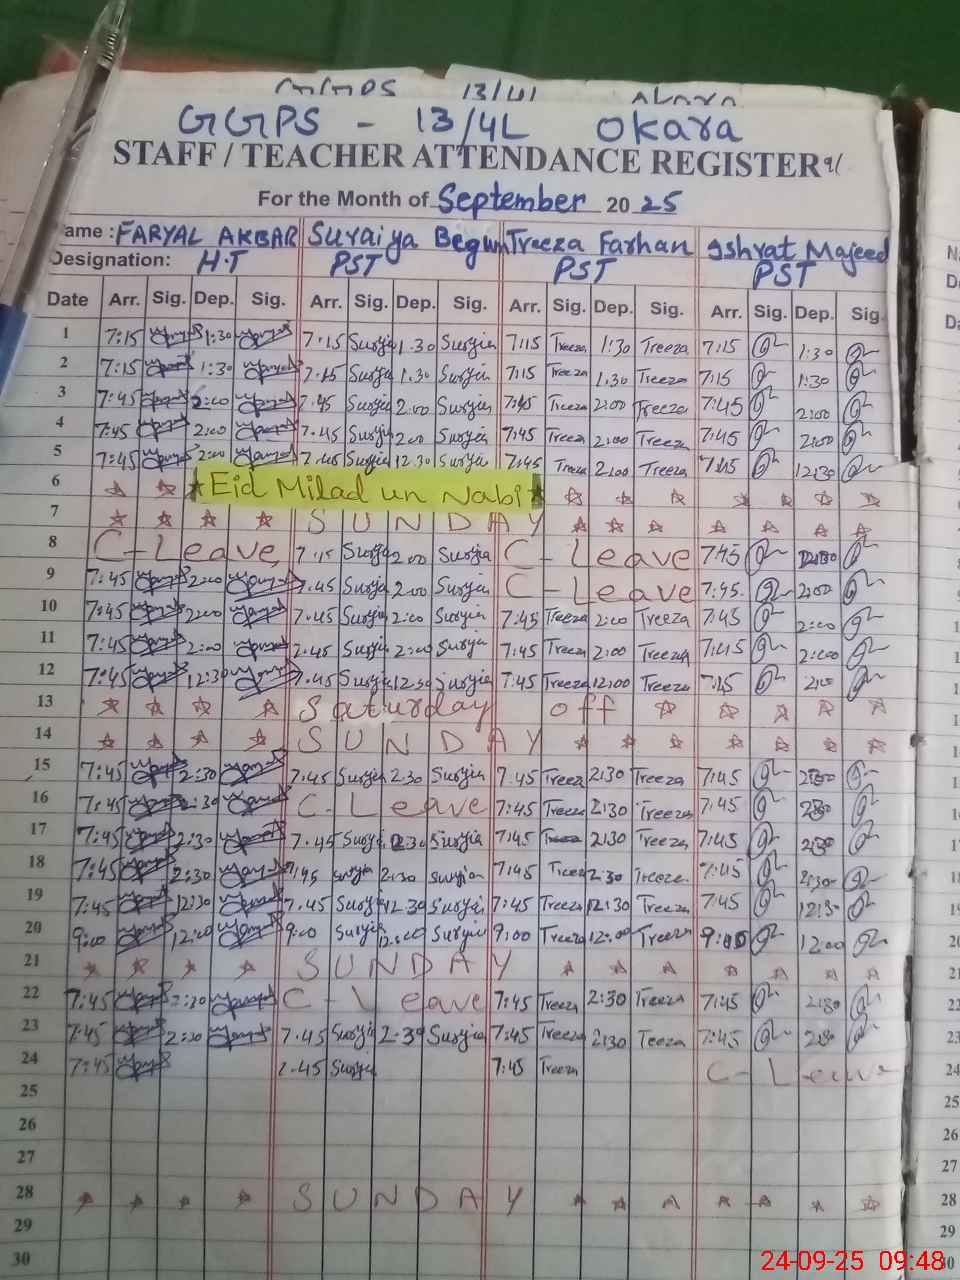 GGPS 13/4L Okara
GGPS - 13/4L Okara
STAFF / TEACHER ATTENDANCE REGISTER
For the Month of September 20 25
ame : FARYAL AKBAR Suraiya Begum Treeza Farhan Ishrat Majeed
Designation: H.T PST PST PST
Date Arr. Sig. Dep. Sig. Arr. Sig. Dep. Sig. Arr. Sig. Dep. Sig. Arr. Sig. Dep. Sig.
1 7:15 1:30 7.15 Surjia 1.30 Surjia 7:15 Treeza 1:30 Treeza 7:15 1:30
2 7:15 1:30 7.15 Surjia 1.30 Surjia 7:15 Treeza 1.30 Treeza 7:15 1:30
3 7:45 2:00 7.45 Surjia 2.00 Surjia 7:45 Treeza 2:00 Treeza 7:45 2:00
4 7:45 2:00 7.45 Surjia 2.00 Surjia 7:45 Treeza 2:00 Treeza 7:45 2:00
5 7:45 2:00 7.45 Surjia 12.30 Surjia 7:45 Treeza 2:00 Treeza 7:45 12:30
6 Eid Milad un Nabi
7 SUNDAY
8 C-Leave 7.15 Surjia 2.00 Surjia C-Leave 7:45
9 7:45 2:00 7.45 Surjia 2.00 Surjia C-Leave 7:45 2:00
10 7:45 2:00 7.45 Surjia 2:00 Surjia 7:45 Treeza 2:00 Treeza 7:45 2:00
11 7:45 2:00 7.45 Surjia 2:00 Surjia 7:45 Treeza 2:00 Treeza 7:45 2:00
12 7:45 12:30 7.45 Surjia 12.30 Surjia 7:45 Treeza 12:00 Treeza 7:45
13 Saturday off
14 SUNDAY
15 7:45 2:30 7.45 Surjia 2.30 Surjia 7.45 Treeza 2:30 Treeza 7:45
16 7:45 2:30 C-Leave 7:45 Treeza 2:30 Treeza 7:45
17 7:45 2:30 7.45 Surjia 2:30 Surjia 7:45 Treeza 2:30 Treeza 7:45
18 7:45 2:30 7:45 Surjia 2:30 Surjia 7:45 Treeza 2:30 Treeza 7:45 2:30
19 7:45 12:30 7.45 Surjia 12.30 Surjia 7:45 Treeza 12:30 Treeza 7:45 12:30
20 9:00 12:00 9:00 Surjia 12:00 Surjia 9:00 Treeza 12:00 Treeza 9:00 12:00
21 SUNDAY
22 7:45 2:30 C-Leave 7:45 Treeza 2:30 Treeza 7:45 2:30
23 7:45 2:30 7.45 Surjia 2:30 Surjia 7:45 Treeza 2:30 Teeza 7:45 2:30
24 7:45 7.45 Surjia 7:45 Treeza C-Leave
25
26
27
28 SUNDAY
29
30
24-09-25 09:48